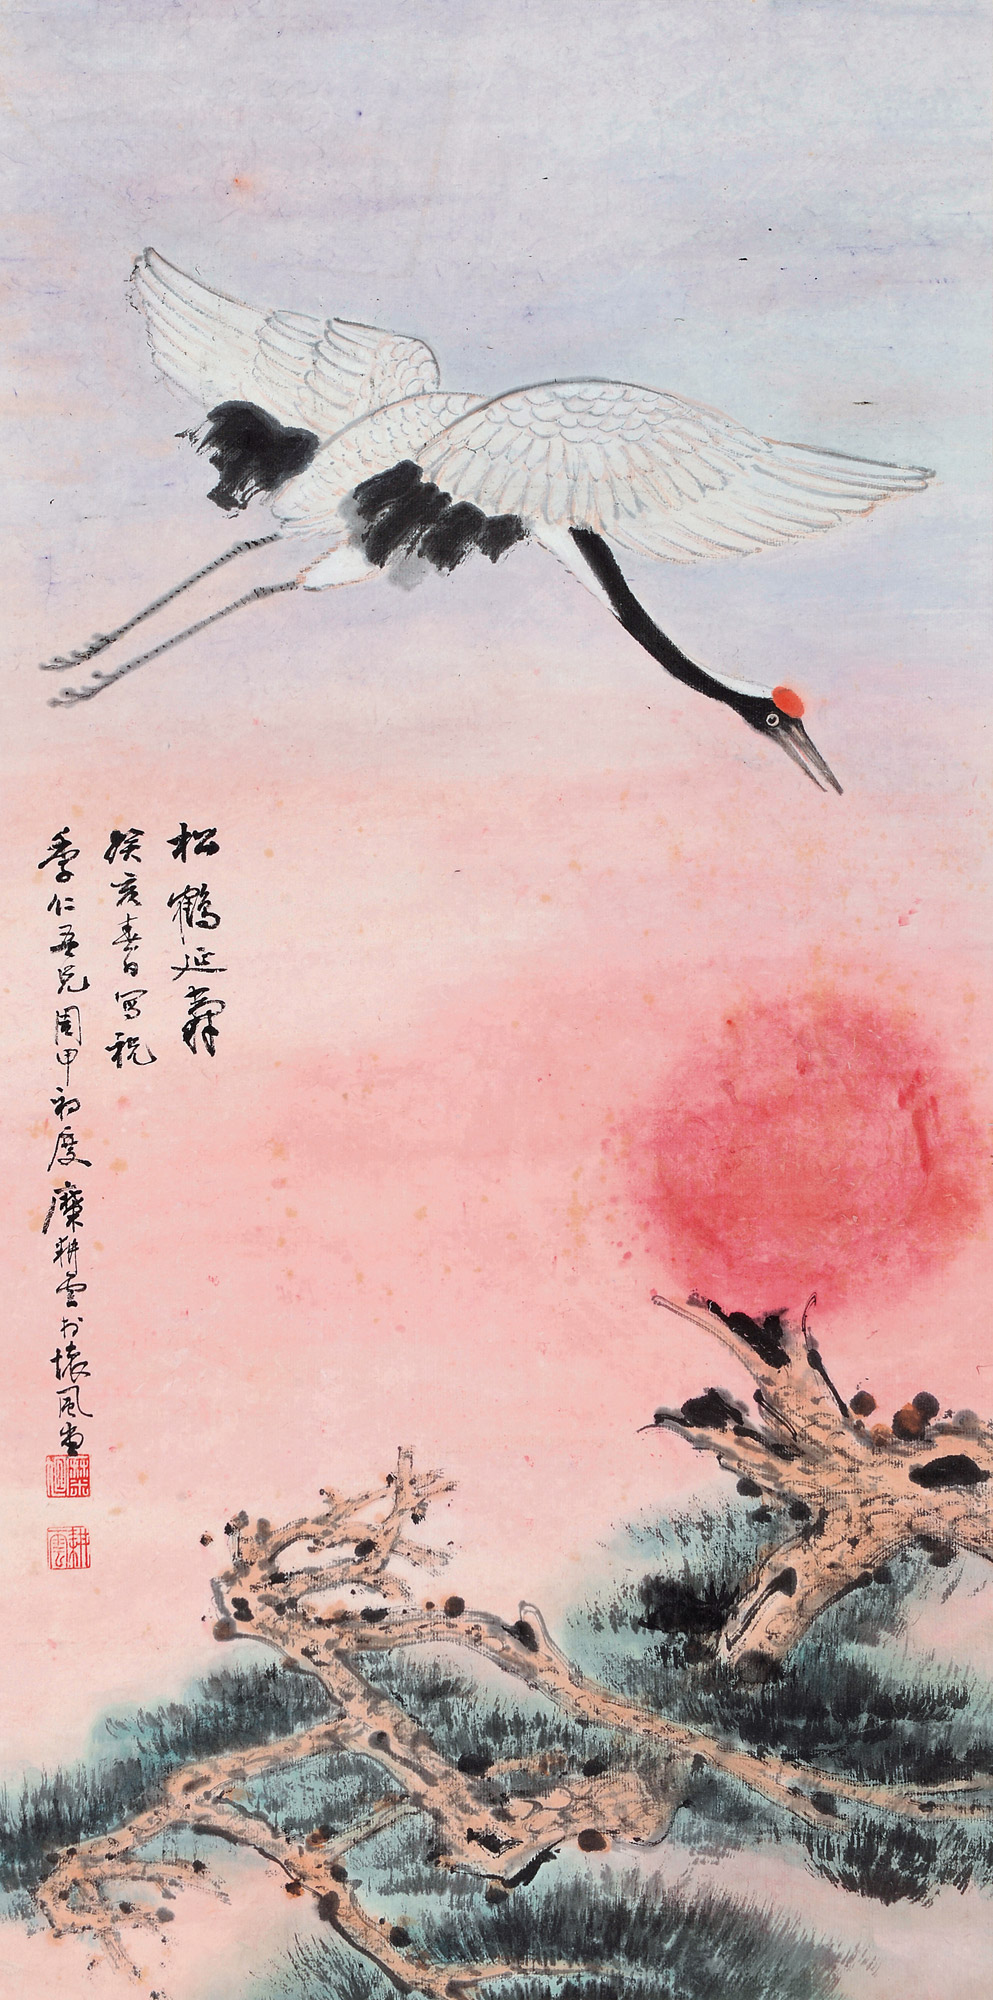 松鶴延壽
癸亥春日寫祝
季仁吾兄周甲初度 糜耕雲於懷風堂
糜
耕雲